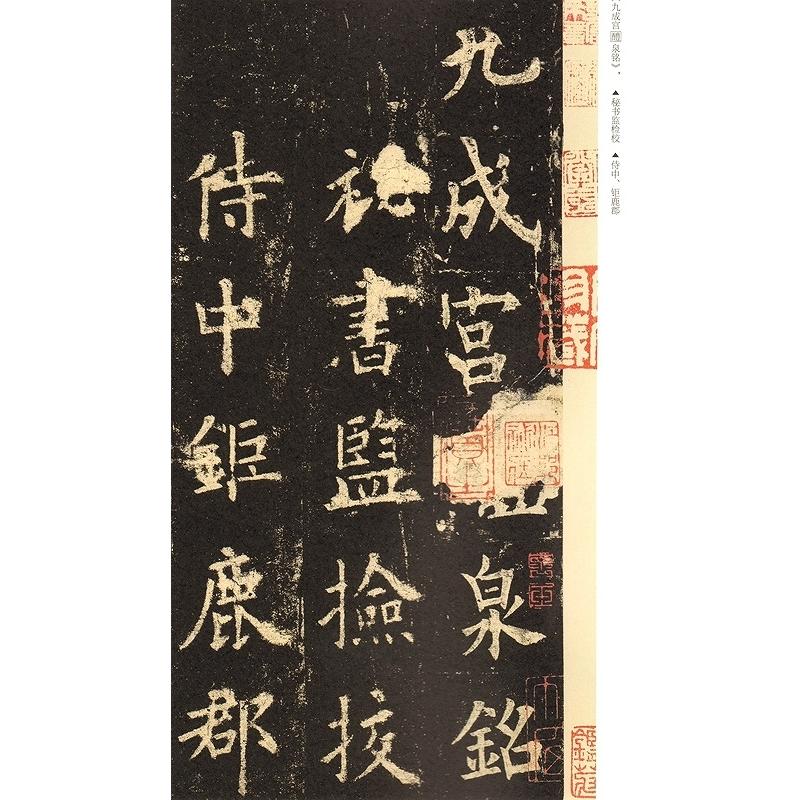 九成宫醴泉铭》， ▲秘书监检校 ▲侍中、钜鹿郡
九成宮泉銘
祕書監撿挍
侍中鉅鹿郡